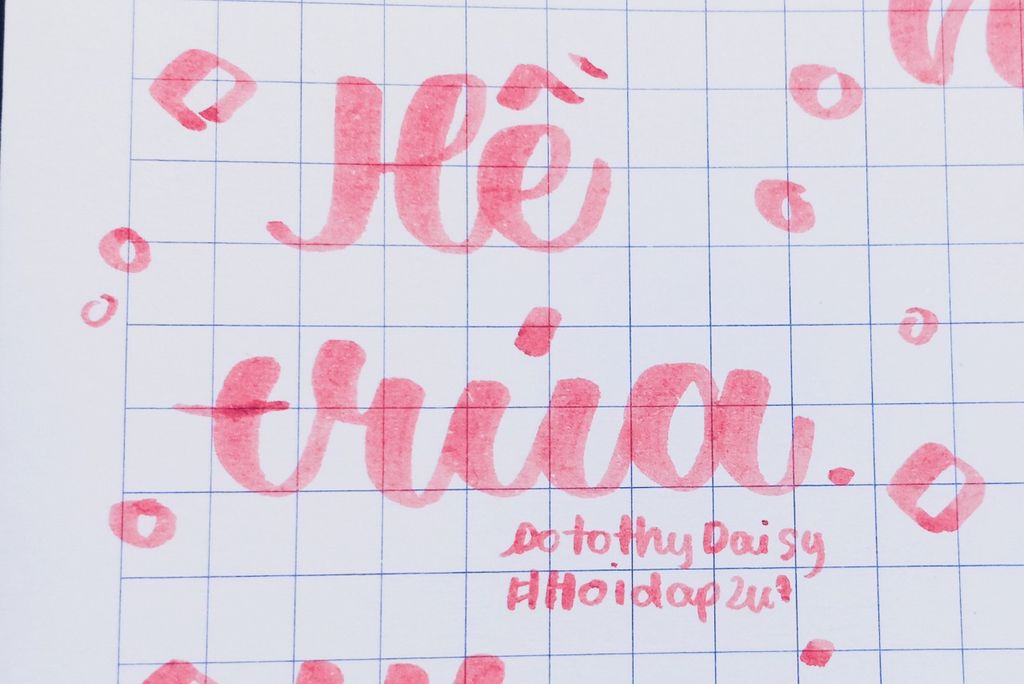 Hề
trúa.
Dotothy Daisy
#Hoidap247